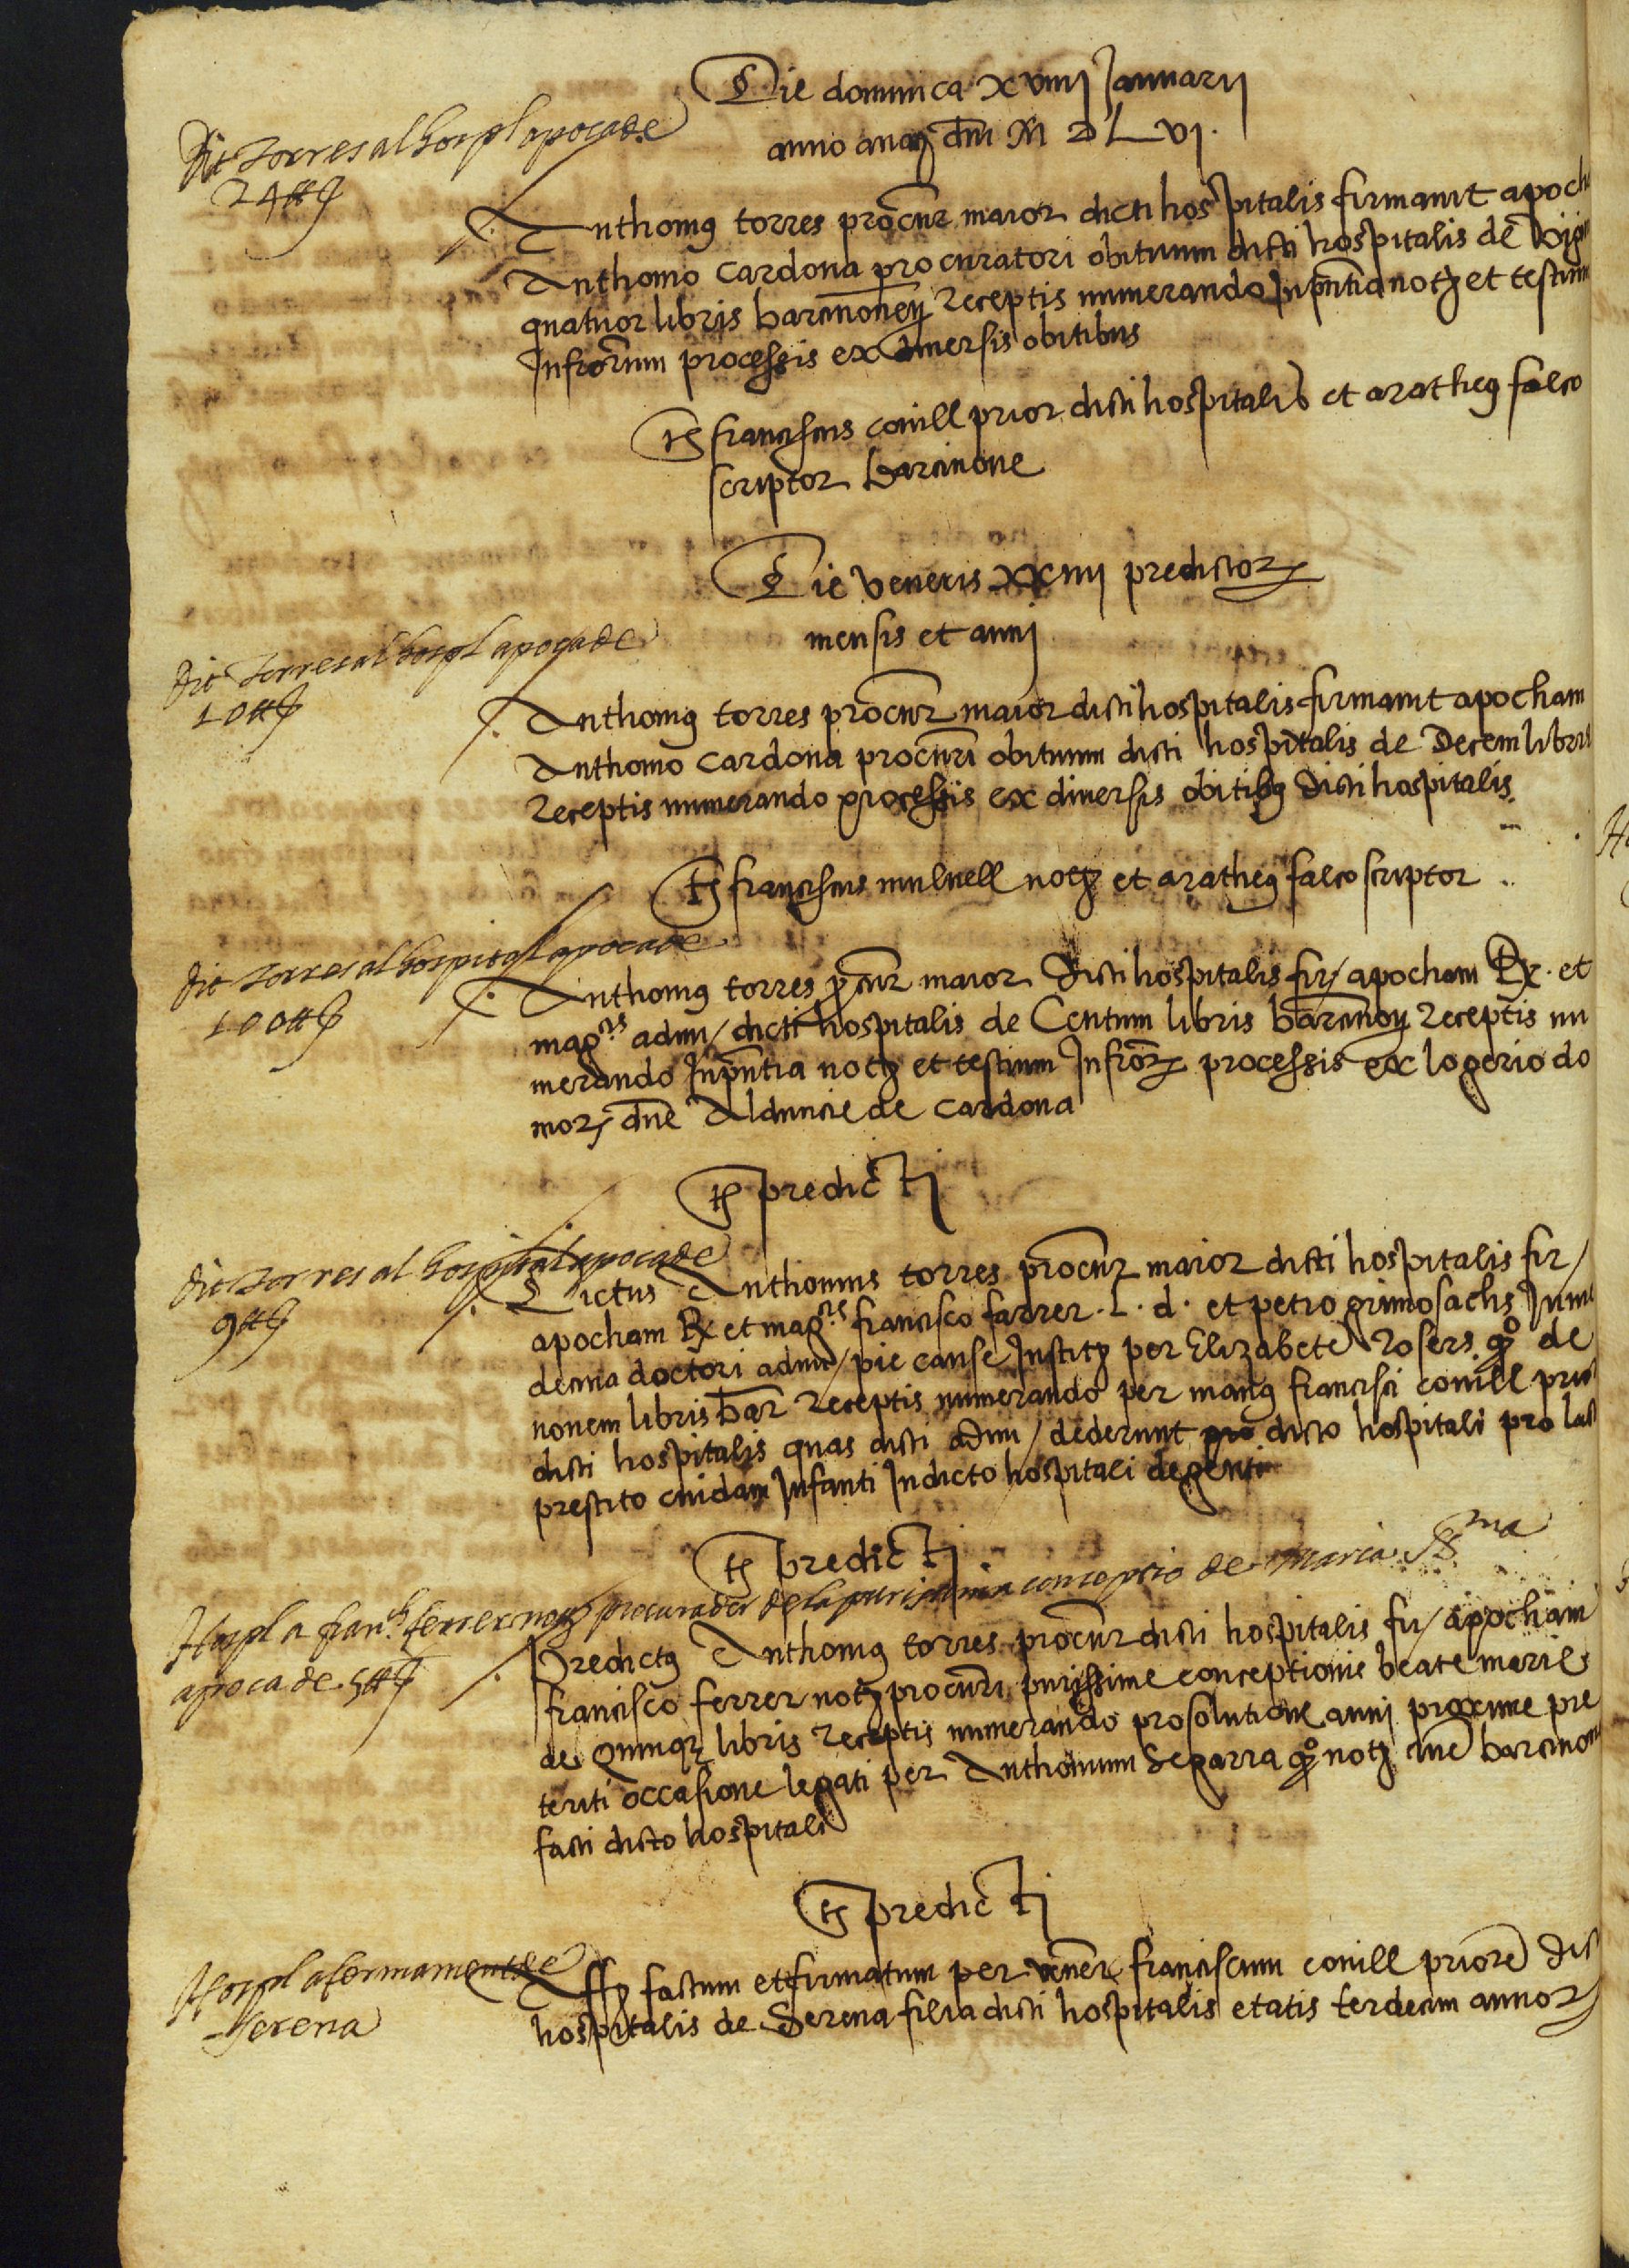 Die dominica xviiij Januarii
anno a nat dni M D L vj.
dit Torres al hospl apoca de
24 ll
Anthonius torres procur maior dicti hospitalis firmavit apoch
Anthonio Cardona procuratori obituum dicti hospitalis de vigin
quatuor libris barcinonen receptis numerando in pntia noty et testium
Infrorum processis ex diversis obitibus
Ts franciscus conill prior dicti hospitalis et aratheus falco
scriptor barcinone
Die veneris xxiiij predictor
mensis et anni
dit Torres al hospl apoca de
10 ll
Anthonius torres procur maior dicti hospitalis firmavit apocham
Anthonio Cardona procuri obituum dicti hospitalis de Decem libris
receptis numerando processis ex diversis obitibus dicti hospitalis
Ts franciscus mulnell noty et aratheus falco scriptor
dit Torres al hospital apoca de
100 ll
Anthonius torres pcur maior dicti hospitalis fir/ apocham Rx. et
magcis admi/ dicti hospitalis de Centum libris barcinon receptis nu
merando In pntia noty et testium Infror processis ex logerio do
mor dne Alduncie de Cardona
Ts predicti
dit Torres al hospital apoca de
9 ll
Dictus Anthonius torres procur maior dicti hospitalis fir/
apocham Rx et magcis francisco farrer .L. d. et petro grimosachs Inme
decina doctori admi/ pie cause Institu per Elizabete Rosers qo de
novem libris bar receptis numerando per manus francisci conill prior
dicti hospitalis quas dicti admi/ dederunt dicto hospitali pro lact
prestito cuidam Infanti In dicto hospitali degenti
Ts predicti
Hospl a franch ferrer noty procurador de la purissima conceptio de Maria SSma
apoca de 5 ll
Predictus Anthonius torres procur dicti hospitalis fir/ apocham
francisco ferrer noty procuri purissime conceptionis beate marie
de Quinque libris receptis numerando pro solutione anni proxime pre
teriti occasione legati per Anthonium Segarra qo noty cive barcinone
facti dicto hospitali
Ts predicti
Hospl afermament de
Serena
Aff factum et firmatum per vener franciscum conill priore dict
hospitalis de Serena filia dicti hospitalis etatis terdecim annor